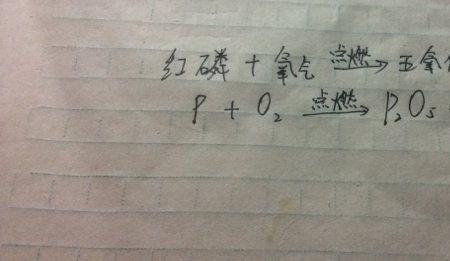 红磷 + 氧气 点燃→ 五氧
P + O₂ 点燃→ P₂O₅